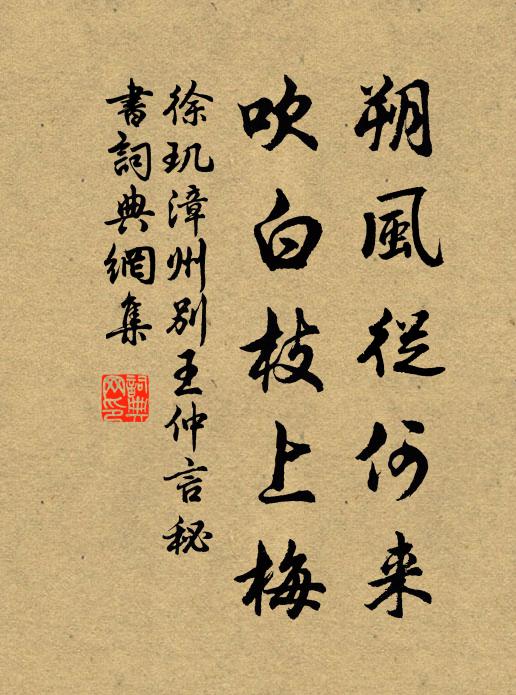 朔風從何来
吹白枝上梅
徐玑漳州别王仲言秘
書詞典網集
詞典網印